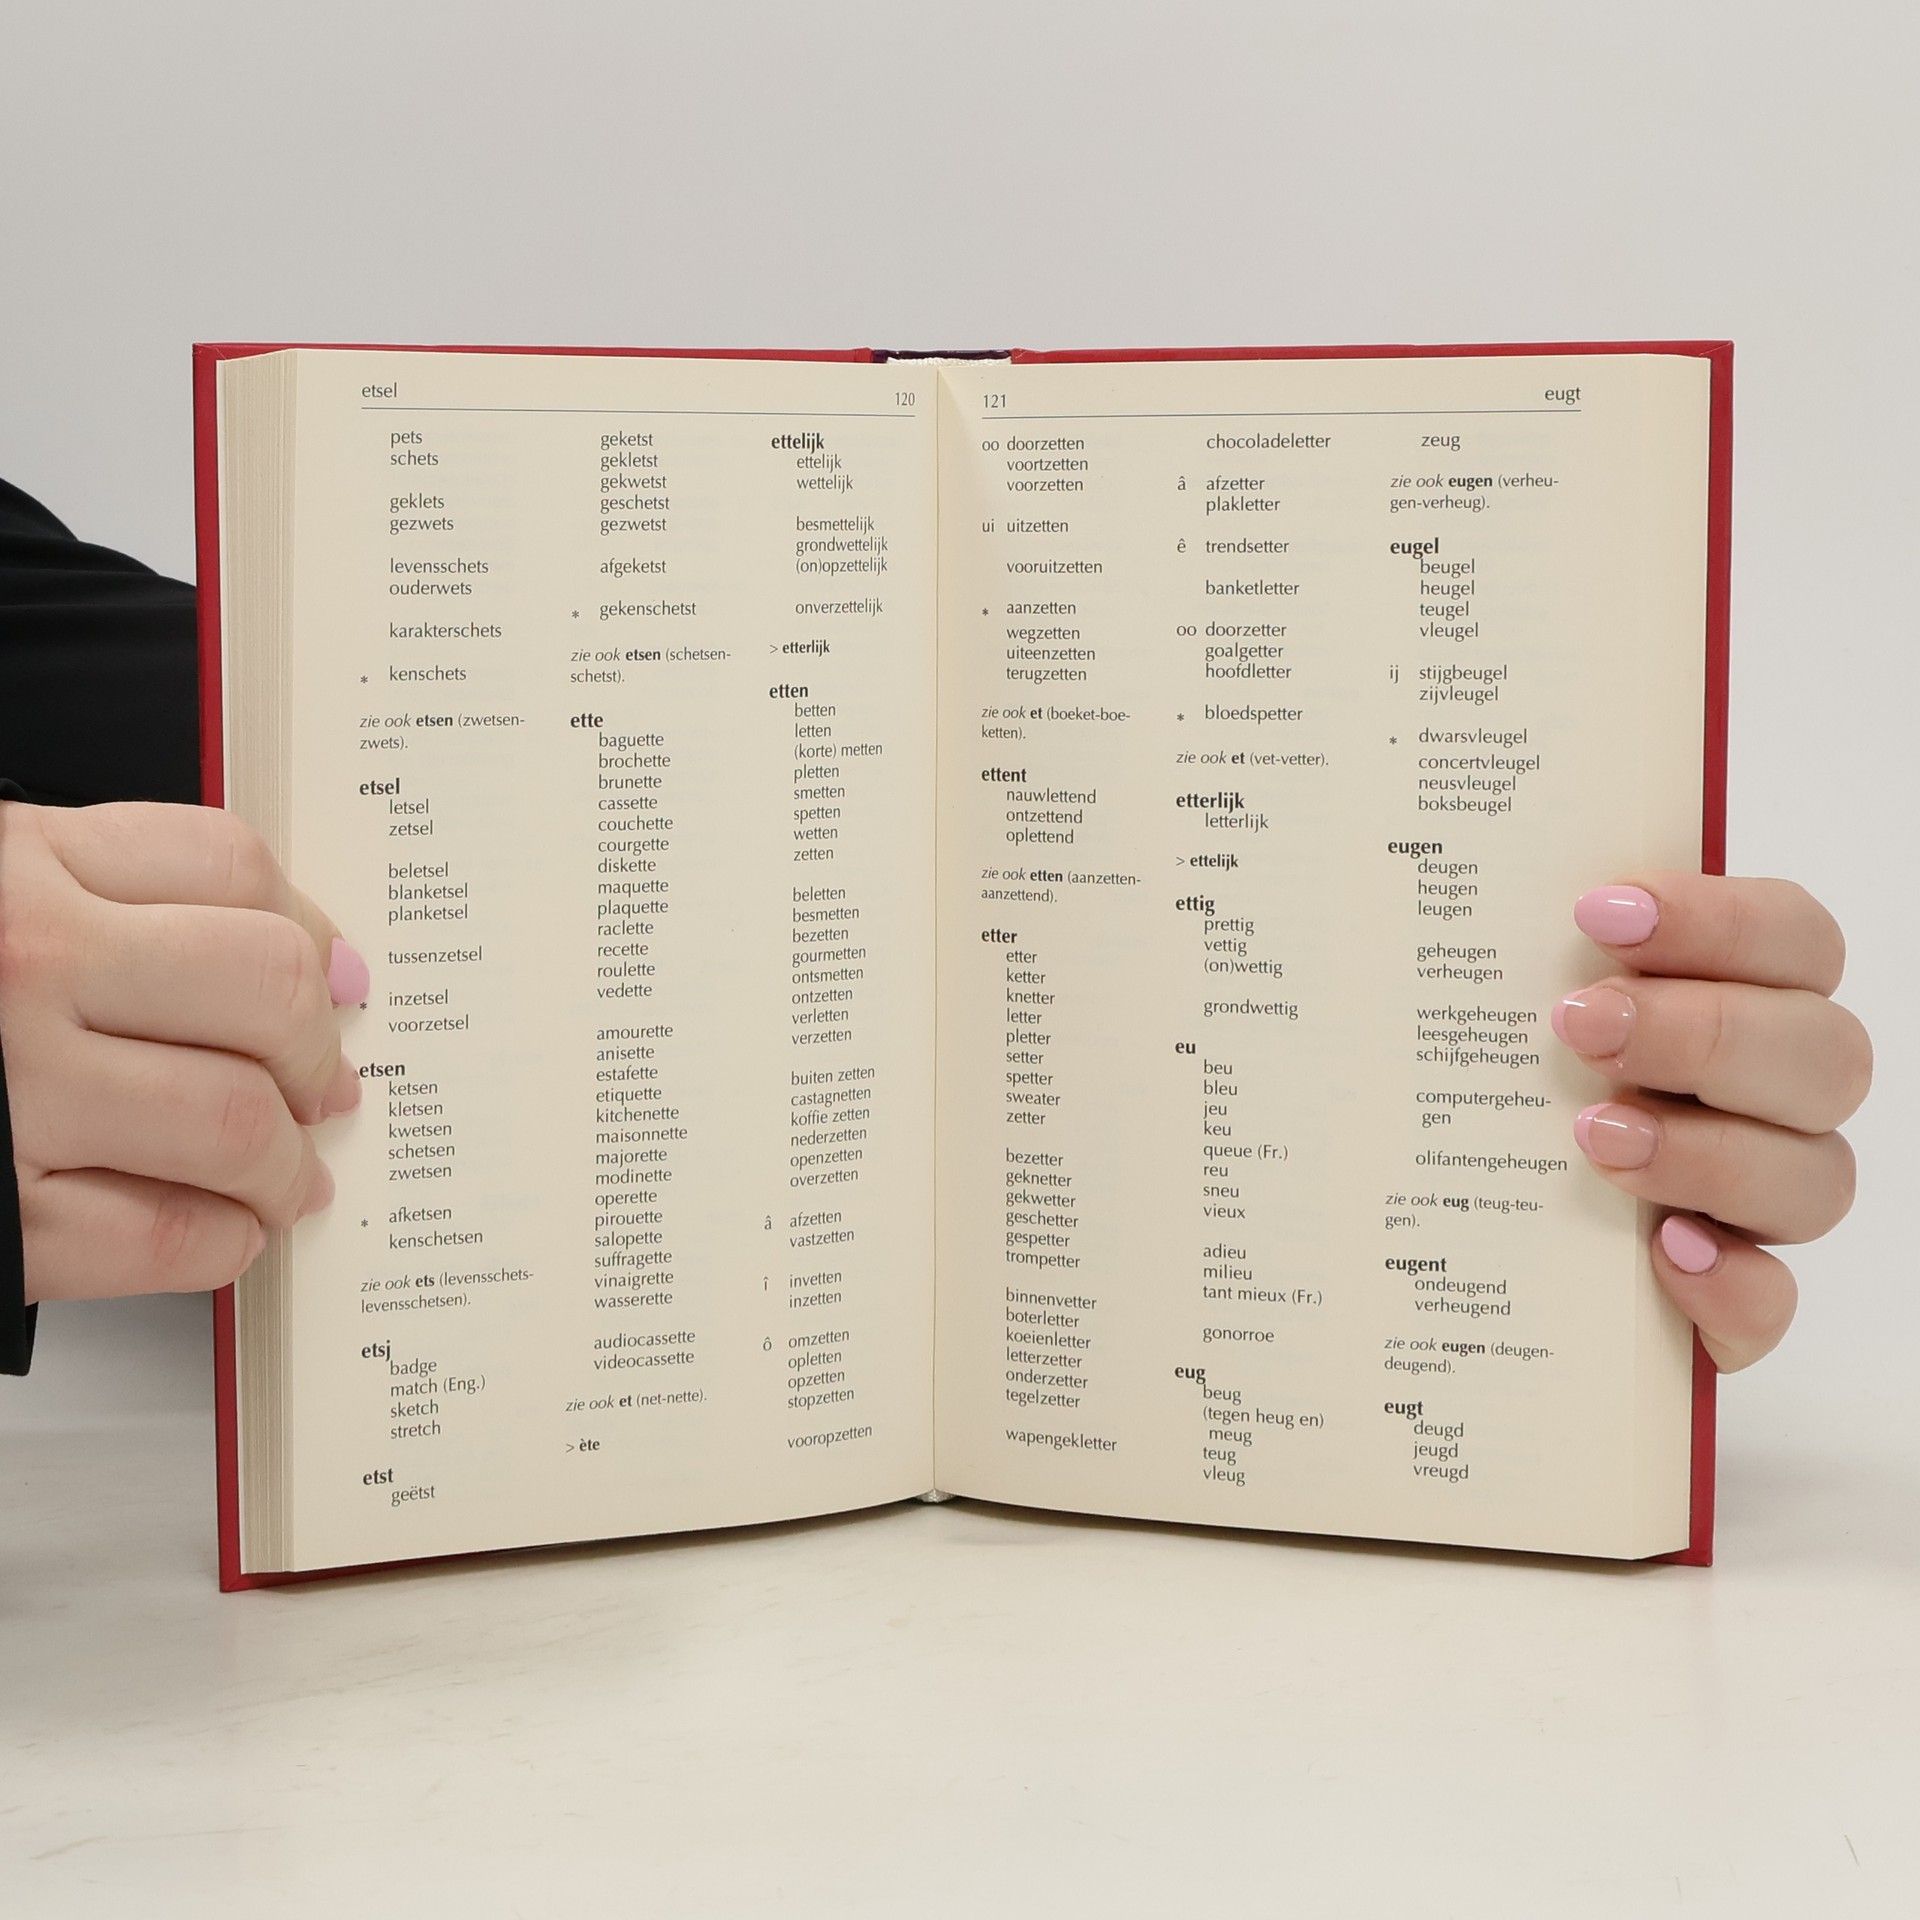 etsel
120
pets
schets
geklets
gezwets
levensschets
ouderwets
karakterschets
* kenschets
zie ook etsen (zwetsen-
zwets).
etsel
letsel
zetsel
beletsel
blanketsel
planketsel
tussenzetsel
* inzetsel
voorzetsel
etsen
ketsen
kletsen
kwetsen
schetsen
zwetsen
* afketsen
kenschetsen
zie ook ets (levensschets-
levensschetsen).
etsj
badge
match (Eng.)
sketch
stretch
etst
geëtst
geketst
gekletst
gekwetst
geschetst
gezwetst
afgeketst
* gekenschetst
zie ook etsen (schetsen-
schetst).
ette
baguette
brochette
brunette
cassette
couchette
courgette
diskette
maquette
plaquette
raclette
recette
roulette
vedette
amourette
anisette
estafette
etiquette
kitchenette
maisonnette
majorette
modinette
operette
pirouette
salopette
suffragette
vinaigrette
wasserette
audiocassette
videocassette
zie ook et (net-nette).
> ète
ettelijk
ettelijk
wettelijk
besmettelijk
grondwettelijk
(on)opzettelijk
onverzettelijk
> etterlijk
etten
betten
letten
(korte) metten
pletten
smetten
spetten
wetten
zetten
beletten
besmetten
bezetten
gourmetten
ontsmetten
ontzetten
verletten
verzetten
buiten zetten
castagnetten
koffie zetten
nederzetten
openzetten
overzetten
â afzetten
vastzetten
î invetten
inzetten
ô omzetten
opletten
opzetten
stopzetten
vooropzetten
121
eugt
oo doorzetten
voortzetten
voorzetten
ui uitzetten
vooruitzetten
* aanzetten
wegzetten
uiteenzetten
terugzetten
zie ook et (boeket-boe-
ketten).
ettent
nauwlettend
ontzettend
oplettend
zie ook etten (aanzetten-
aanzettend).
etter
etter
ketter
knetter
letter
pletter
setter
spetter
sweater
zetter
bezetter
geknetter
gekwetter
geschetter
gespetter
trompetter
binnenvetter
boterletter
koeienletter
letterzetter
onderzetter
tegelzetter
wapengekletter
chocoladeletter
â afzetter
plakletter
ê trendsetter
banketletter
oo doorzetter
goalgetter
hoofdletter
* bloedspetter
zie ook et (vet-vetter).
etterlijk
letterlijk
> ettelijk
ettig
prettig
vettig
(on)wettig
grondwettig
eu
beu
bleu
jeu
keu
queue (Fr.)
reu
sneu
vieux
adieu
milieu
tant mieux (Fr.)
gonorroe
eug
beug
(tegen heug en)
meug
teug
vleug
zeug
zie ook eugen (verheu-
gen-verheug).
eugel
beugel
heugel
teugel
vleugel
ij stijgbeugel
zijvleugel
* dwarsvleugel
concertvleugel
neusvleugel
boksbeugel
eugen
deugen
heugen
leugen
geheugen
verheugen
werkgeheugen
leesgeheugen
schijfgeheugen
computergeheu-
gen
olifantengeheugen
zie ook eug (teug-teu-
gen).
eugent
ondeugend
verheugend
zie ook eugen (deugen-
deugend).
eugt
deugd
jeugd
vreugd